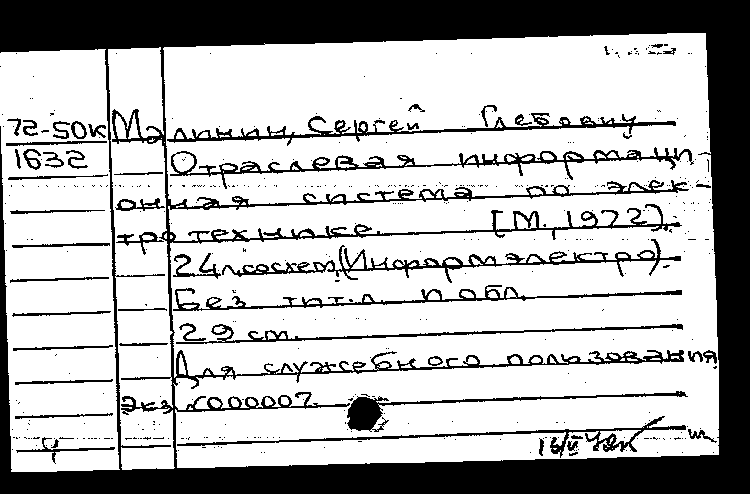 72-50к Малинин, Сергей Глебович
1632 Отраслевая информаци-
онная система по элек-
тротехнике. [М., 1972].
24 л. со схем. (Информэлектро).
Без тит. л. и обл.
29 см.
Для служебного пользования
экз. №000007.
Ч 16/II